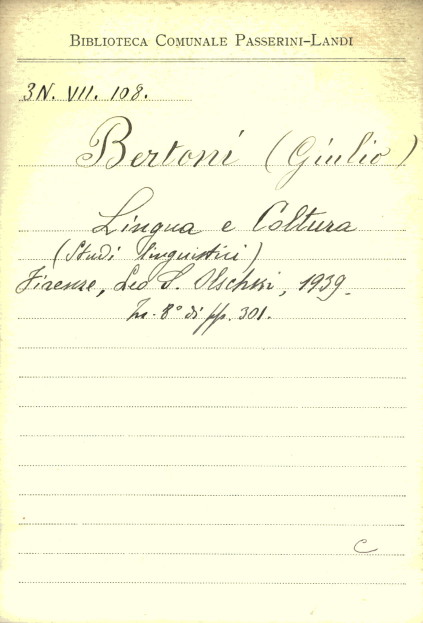 BIBLIOTECA COMUNALE PASSERINI-LANDI
3N. VII. 108.
Bertoni (Giulio)
Lingua e Coltura
(Studi linguistici)
Firenze, Leo S. Olschki, 1939.
In-8° di pp. 301.
C